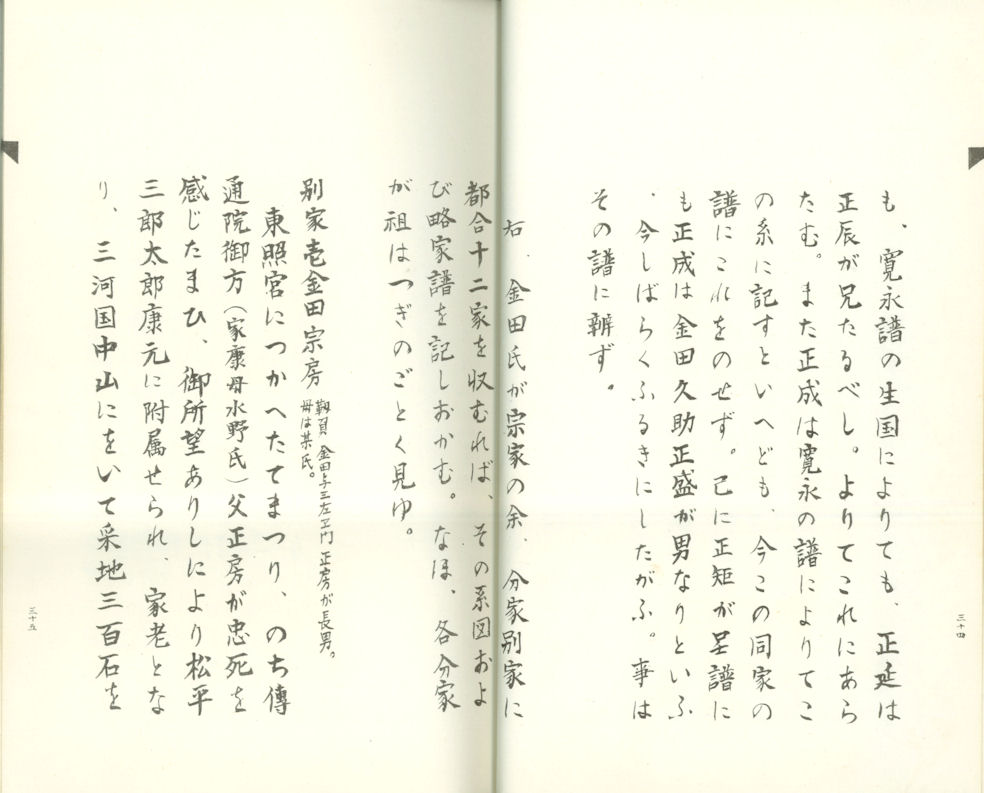 も、寛永譜の生国によりても、正延は
正辰が兄たるべし。よりてこれにあら
たむ。また正成は寛永の譜によりてこ
の系に記すといへども、今この同家の
譜にこれをのせず。已に正矩が呈譜に
も正成は金田久助正盛が男なりといふ
、今しばらくふるきにしたがふ。事は
その譜に辨ず。
右、金田氏が宗家の余、分家別家に
都合十二家を収むれば、その系図およ
び略家譜を記しおかむ。なほ、各分家
が祖はつぎのごとく見ゆ。
別家壱金田宗房 靱負 金田与三左ヱ門 正房が長男。
母は某氏。
東照宮につかへたてまつり、のち傳
通院御方(家康母水野氏)父正房が忠死を
感じたまひ、御所望ありしにより松平
三郎太郎康元に附属せられ、家老とな
り、三河国中山にをいて采地三百石を
三十四
三十五